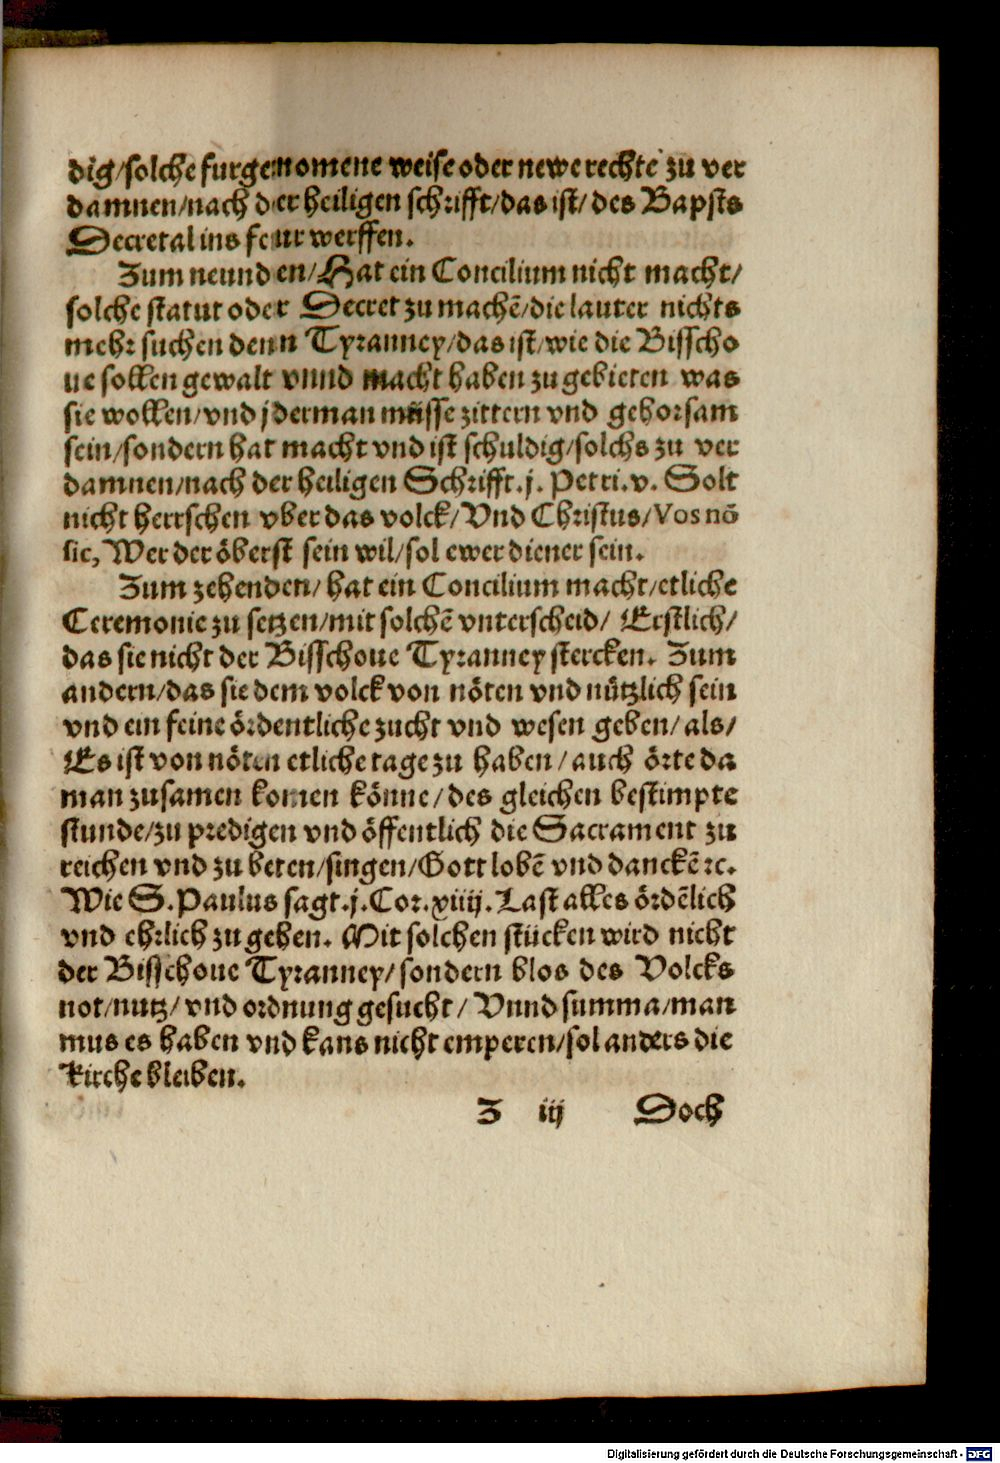 dig/solche furgenomene weise oder newe rechte zu ver
damnen/nach der heiligen schrifft/das ist/des Bapsts
Decretal ins feur werffen.
Zum neunden/Hat ein Concilium nicht macht/
solche statut oder Decret zu machē/die lauter nichts
mehr suchen denn Tyranney/das ist/wie die Bisscho
ue sollen gewalt vnnd macht haben zu gebieten was
sie wollen/vnd jderman müsse zittern vnd gehorsam
sein/sondern hat macht vnd ist schuldig/solchs zu ver
damnen/nach der heiligen Schrifft.j. Petri.v. Solt
nicht herrschen vber das volck/Vnd Christus/Vos nō
sic, Wer der öberst sein wil/sol ewer diener sein.
Zum zehenden/hat ein Concilium macht/etliche
Ceremonie zu setzen/mit solchē vnterscheid/ Erstlich/
das sie nicht der Bisschoue Tyranney stercken. Zum
andern/das sie dem volck von nöten vnd nützlich sein
vnd ein feine ördentliche zucht vnd wesen geben/als/
Es ist von nöten etliche tage zu haben/auch örte da
man zusamen komen könne/des gleichen bestimpte
stunde/zu predigen vnd öffentlich die Sacrament zu
reichen vnd zu beten/singen/Gott lobē vnd danckē ꝛc.
Wie S.Paulus sagt.j.Cor.xiiij.Last alles ördēlich
vnd ehrlich zu gehen. Mit solchen stücken wird nicht
der Bisschoue Tyranney/sondern blos des Volcks
not/nutz/vnd ordnung gesucht/ Vnnd summa/man
mus es haben vnd kans nicht emperen/sol anders die
Kirche bleiben.
Z iij Doch
Digitalisierung gefördert durch die Deutsche Forschungsgemeinschaft - DFG